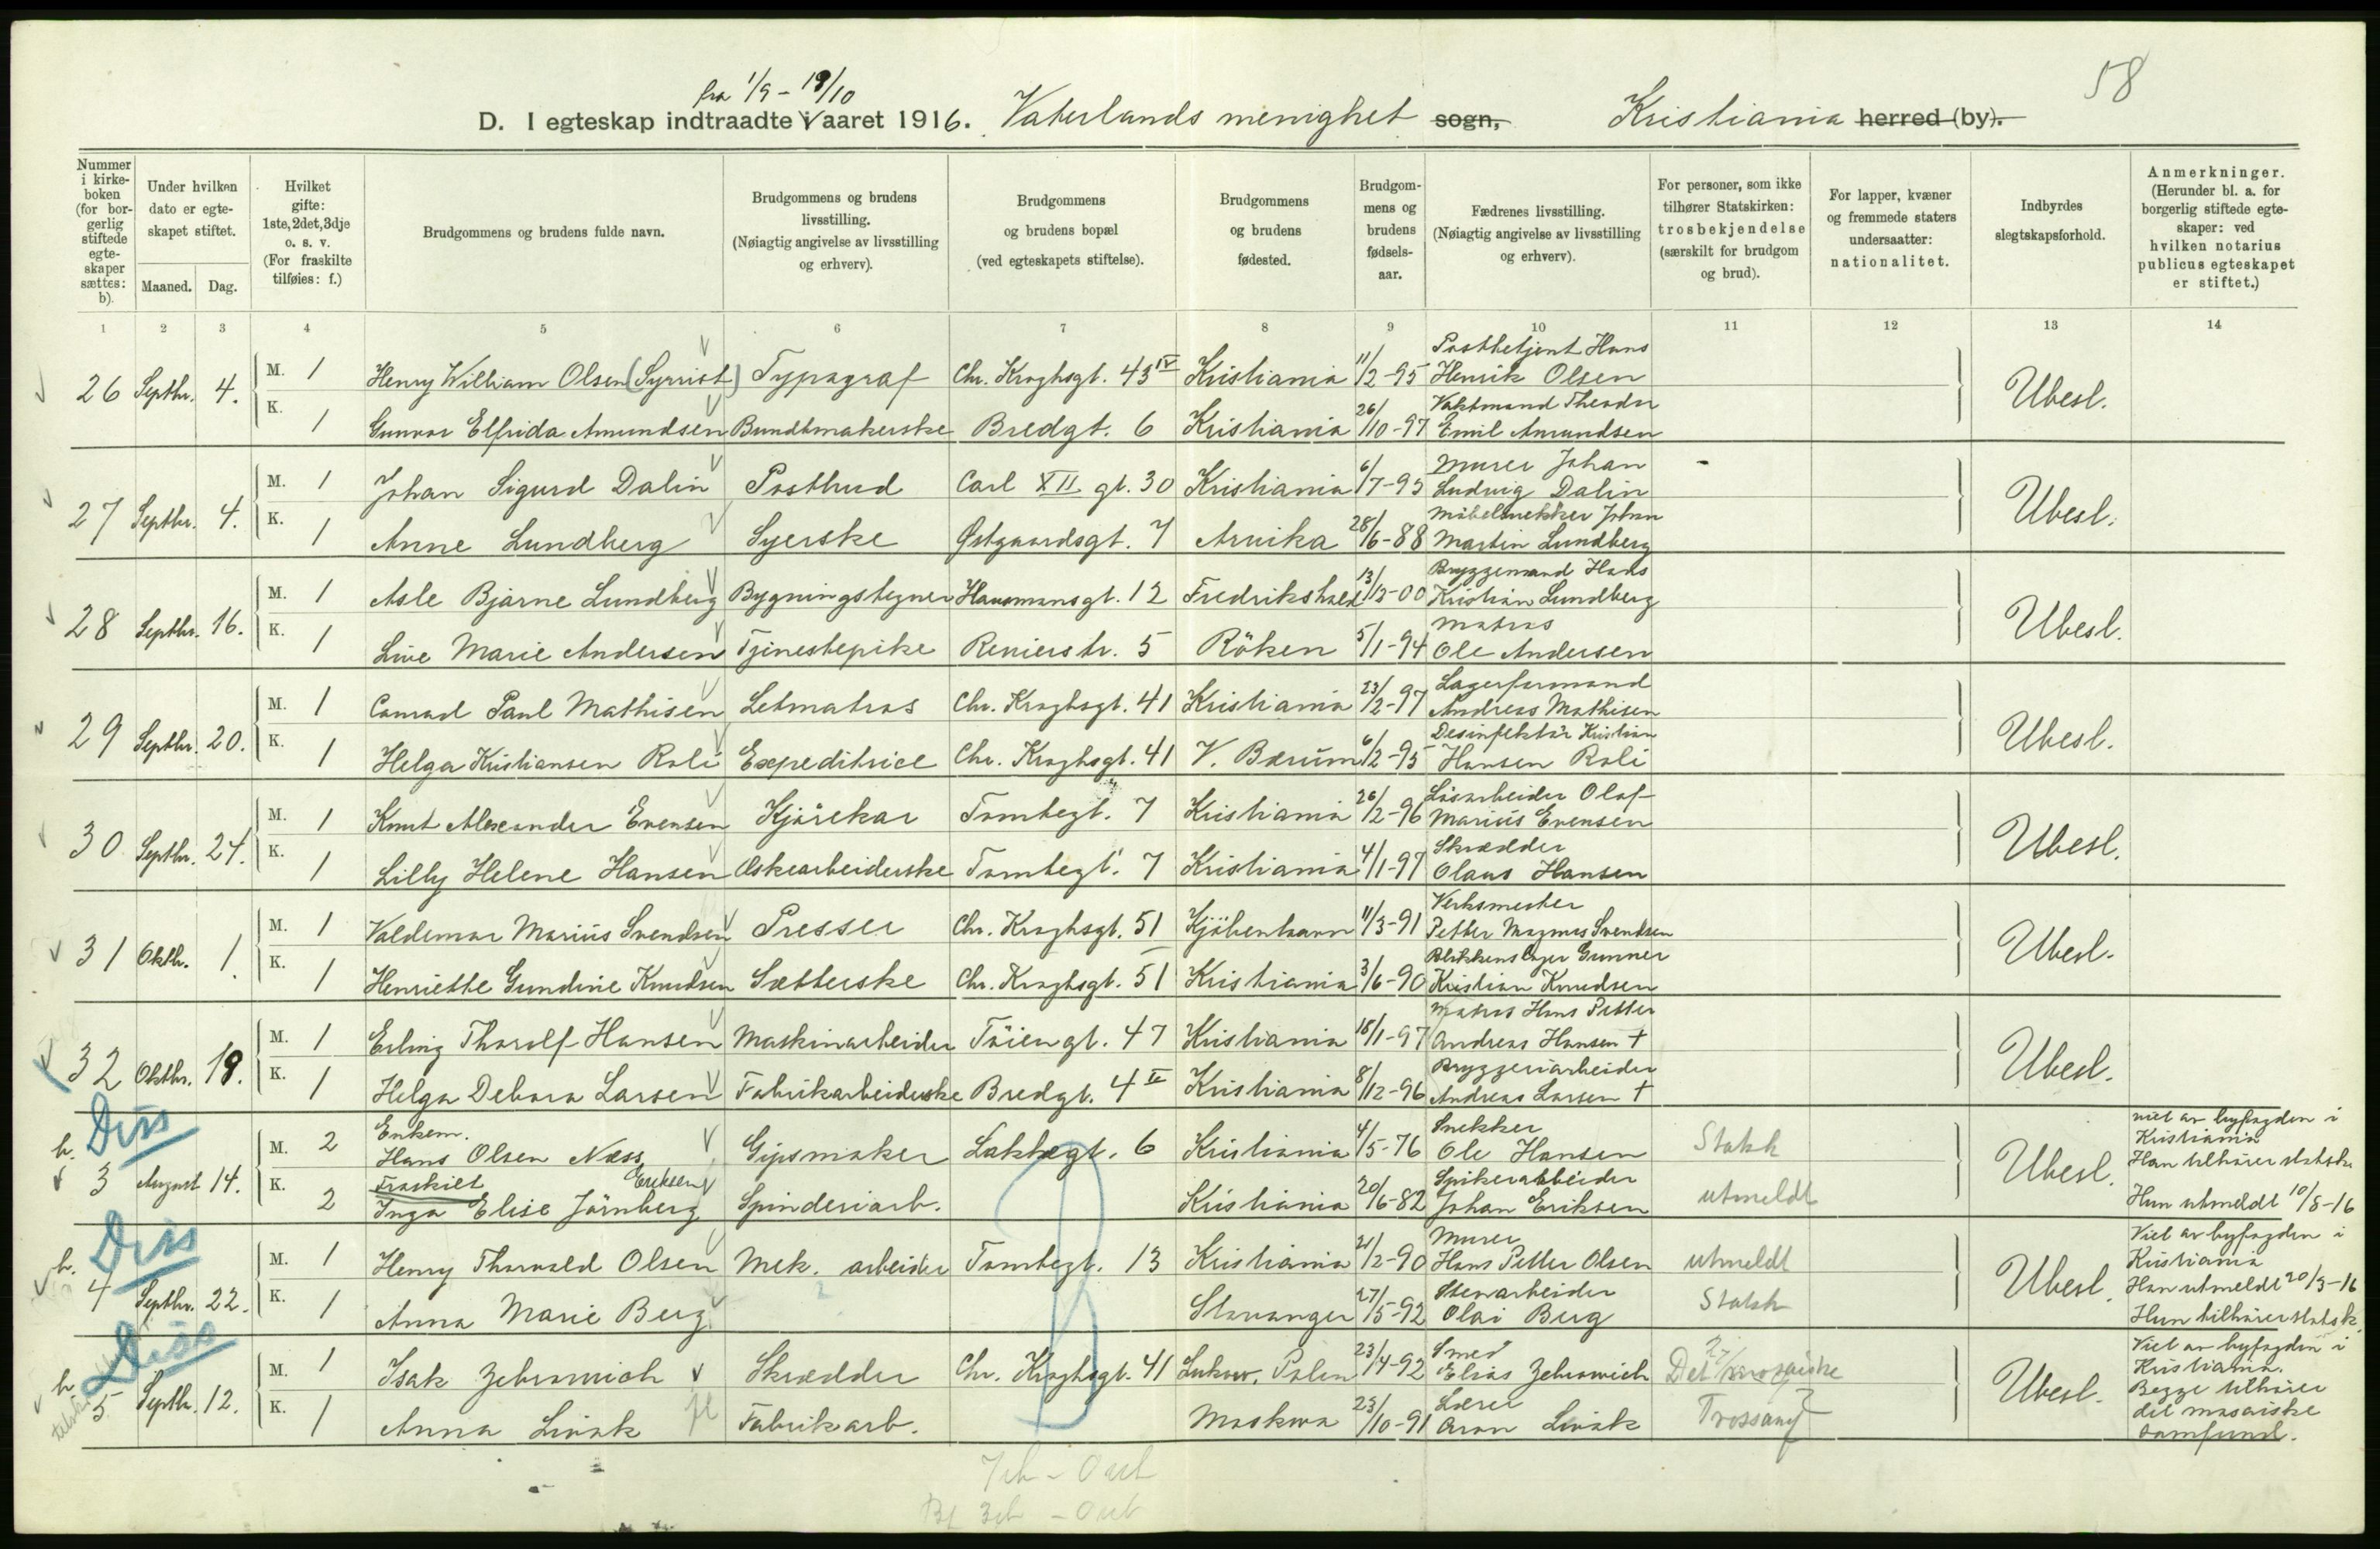 58
fra 1/9 - 19/10
D. I egteskap indtraadte i aaret 1916. Vaterlands menighet sogn, Kristiania herred (by).
Nummer i kirkeboken (for borgerlig stiftede egteskaper sættes: b).
Under hvilken dato er egteskapet stiftet.
Maaned. Dag.
Hvilket gifte: 1ste, 2det, 3dje o. s. v. (For fraskilte tilføies: f.)
Brudgommens og brudens fulde navn.
Brudgommens og brudens livsstilling. (Nøiagtig angivelse av livsstilling og erhverv).
Brudgommens og brudens bopæl (ved egteskapets stiftelse).
Brudgommens og brudens fødested.
Brudgommens og brudens fødselsaar.
Fædrenes livsstilling. (Nøiagtig angivelse av livsstilling og erhverv).
For personer, som ikke tilhører Statskirken: trosbekjendelse (særskilt for brudgom og brud).
For lapper, kvæner og fremmede staters undersaatter: nationalitet.
Indbyrdes slegtskapsforhold.
Anmerkninger. (Herunder bl. a. for borgerlig stiftede egteskaper: ved hvilken notarius publicus egteskapet er stiftet.)
1 2 3 4 5 6 7 8 9 10 11 12 13 14
26 Septbr. 4. M. 1 Henry William Olsen (Syrrist) Typograf Chr. Kroghsgt. 43 IV Kristiania 11/2-95 Postbetjent Hans Henrik Olsen Ubesl.
K. 1 Gunvor Elfrida Amundsen Bundtmakerske Bredgt. 6 Kristiania 26/10-97 Vaktmand Theodor Emil Amundsen
27 Septbr. 4. M. 1 Johan Sigurd Dalin Postbud Carl XII gt. 30 Kristiania 6/7-95 Murer Johan Ludvig Dalin Ubesl.
K. 1 Anne Lundberg Syerske Østgaardsgt. 7 Arvika 28/6-88 Möbelsnekker Johan Martin Lundberg
28 Septbr. 16. M. 1 Asle Bjarne Lundberg Bygningstegner Hausmansgt. 12 Fredrikshald 13/3-00 Bryggemand Hans Kristian Lundberg Ubesl.
K. 1 Live Marie Andersen Tjenestepike Reniersstr. 5 Röken 5/1-94 Matros Ole Andersen
29 Septbr. 20. M. 1 Conrad Paul Mathisen Letmatros Chr. Kroghsgt. 41 Kristiania 23/2-97 Lagerformand Andreas Mathisen Ubesl.
K. 1 Helga Kristiansen Roli Expeditrice Chr. Kroghsgt. 41 V. Bærum 6/2-95 Desinfektör Kristian Hansen Roli
30 Septbr. 24. M. 1 Knut Alexander Evensen Kjörekar Tomtegt. 7 Kristiania 26/2-96 Lösarbeider Olaf Marius Evensen Ubesl.
K. 1 Lilly Helene Hansen Æskearbeiderske Tomtegt. 7 Kristiania 4/1-97 Skrædder Olaus Hansen
31 Oktbr. 1. M. 1 Valdemar Marius Svendsen Presser Chr. Kroghsgt. 51 Kjöbenhavn 11/3-91 Verksmester Petter Magnus Svendsen Ubesl.
K. 1 Henriette Gundine Knudsen Sætterske Chr. Kroghsgt. 51 Kristiania 3/6-90 Blikkenslager Gunner Kristian Knudsen
32 Oktbr. 19. M. 1 Erling Thorolf Hansen Maskinarbeider Töiengt. 47 Kristiania 18/1-97 Matros Hans Petter Andreas Hansen † Ubesl.
K. 1 Helga Debora Larsen Fabrikarbeiderske Bredgt. 4 II Kristiania 8/12-96 Bryggeriarbeider Andreas Larsen †
Diss
b. 3 August 14. M. 2 Enkem. Hans Olsen Næss Gipsmaker Lakkegt. 6 Kristiania 4/5-76 Snekker Ole Hansen Statsk Ubesl. Viet av byfogden i Kristiania Han tilhører statsk.
K. 2 Fraskilt Inga Elise Järnberg Eriksen Spinderiarb. Kristiania 20/6-82 Spikerarbeider Johan Eriksen utmeldt Hun utmeldt 10/8-16
Diss
b. 4 Septbr. 22. M. 1 Henry Thorvald Olsen Mek. arbeider Tomtegt. 13 Kristiania 21/2-90 Murer Hans Petter Olsen utmeldt Ubesl. Viet av byfogden i Kristiania Han utmeldt 20/3-16
K. 1 Anna Marie Berg Stavanger 27/5-92 Stenarbeider Olai Berg Statsk Hun tilhører statsk.
Diss
b. 5 Septbr. 12. M. 1 Isak Zebrowich Skrædder Chr. Kroghsgt. 41 Lukow, Polen 23/4-92 Smed Elias Zebrowich Det mosaiske Ubesl. Viet av byfogden i Kristiania. Begge tilhører det mosaiske samfund.
K. 1 Anna Livak Fabrikarb. Moskwa 23/10-91 Lærer Aron Livak Trossamf